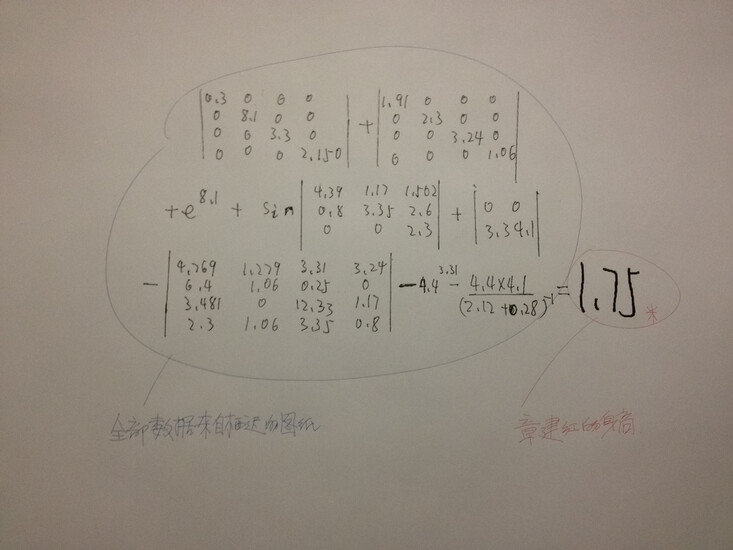 |0.3 0 0 0| + |1.91 0 0 0|
|0 8.1 0 0| |0 2.3 0 0|
|0 0 3.3 0| |0 0 3.24 0|
|0 0 0 2.150| |0 0 0 1.06|
+ e^8.1 + sin |4.39 1.17 1.502| + |0 0|
|0.8 3.35 2.6| |3.3 4.1|
|0 0 2.3|
- |4.769 1.279 3.31 3.24| - 4.4^3.31 - 4.4×4.1/(2.12+0.28)^-1 = 1.75米
|6.4 1.06 0.25 0|
|3.481 0 12.33 1.17|
|2.3 1.06 3.35 0.8|
全部数据来自 的图纸
章建红的身高